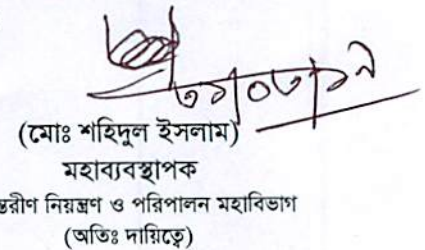 (মোঃ শহিদুল ইসলাম)
মহাব্যবস্থাপক
নিয়ন্ত্রণ ও পরিপালন মহাবিভাগ
(অতিঃ দায়িত্বে)